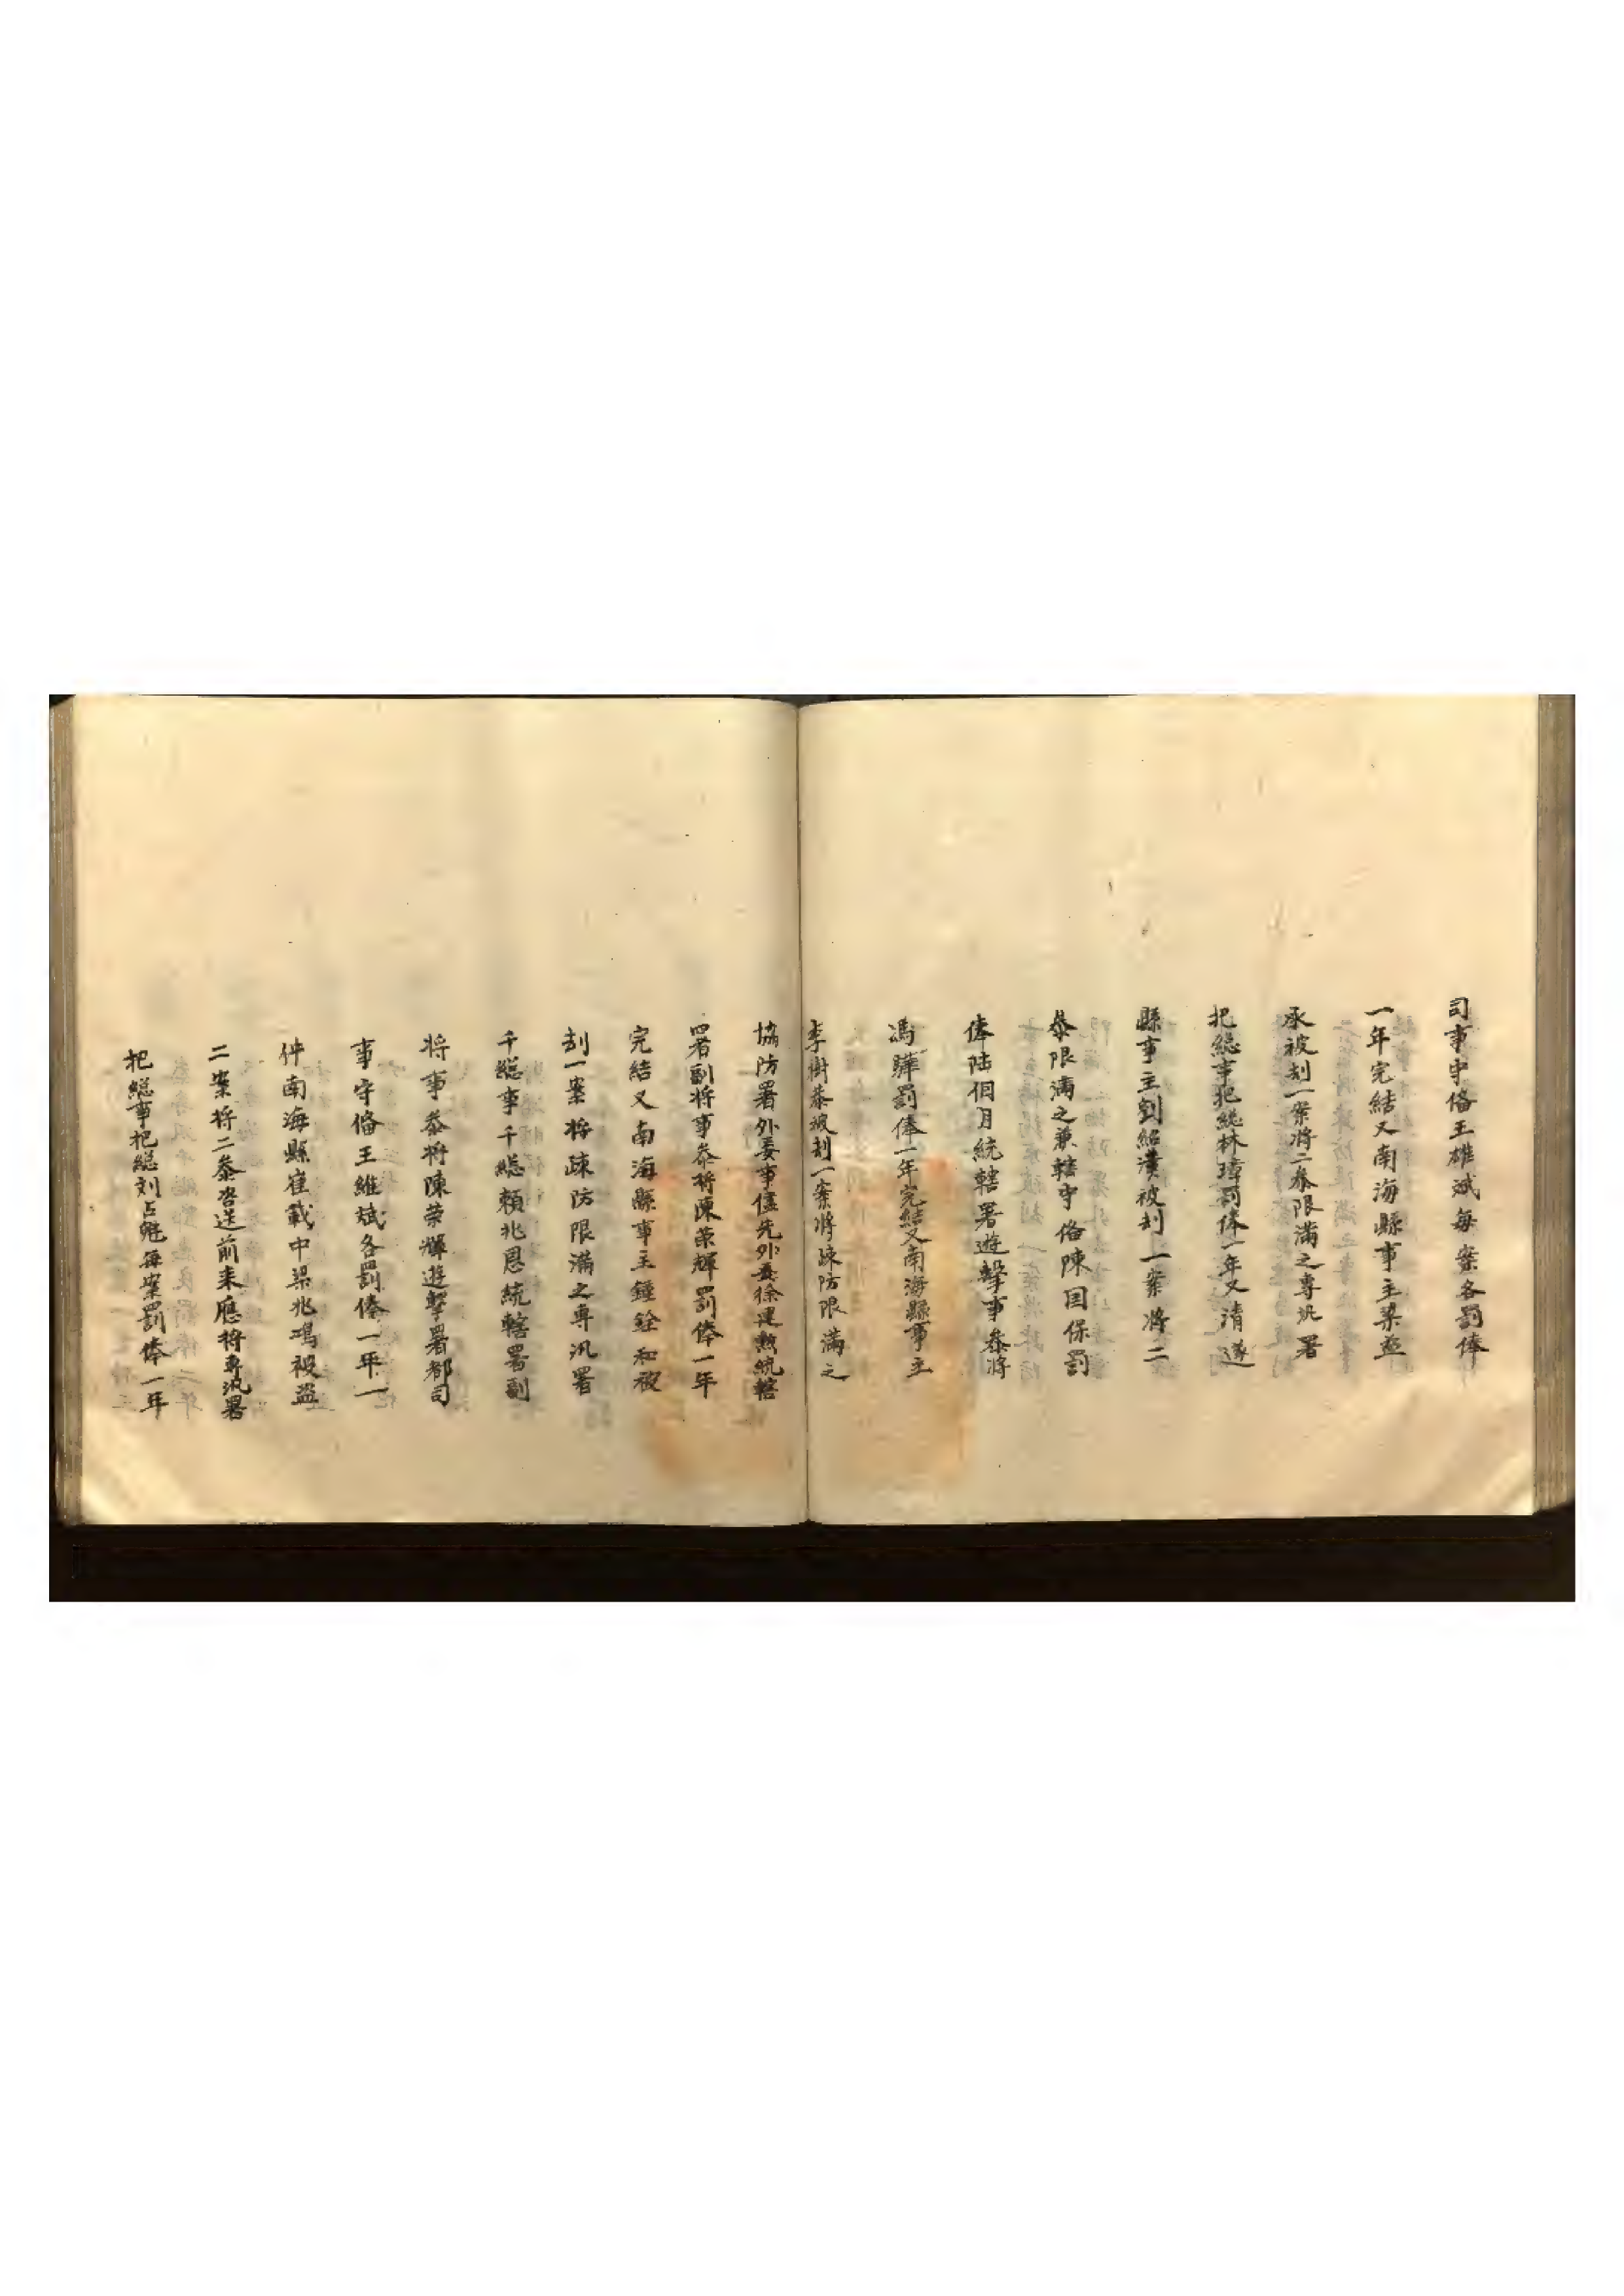 司事守俻王雄斌每案各罰俸
一年完結又南海縣事主梁益
承被刦一案將二叅限滿之專汛署
把総事把総林璋罰俸一年又清遠
縣事主劉紹漢被刦一案將二
叅限滿之兼轄守俻陳国保罰
俸陆個月統轄署遊擊事叅將
馮驊罰俸一年完結又南海縣事主
李樹恭被刦一案將疎防限滿之
協防署外委事儘先外委徐建勲統轄
署副將事叅將陳荣輝罰俸一年
完結又南海縣事主鍾銓和被
刦一案將疎防限滿之專汛署
千総事千総賴兆恩統轄署副
將事叅將陳荣輝遊擊署都司
事守俻王維斌各罰俸一年一
件南海縣崔載中梁兆鴻被盜
二案將二叅咨送前来應將專汛署
把総事把総刘占魁每案罰俸一年